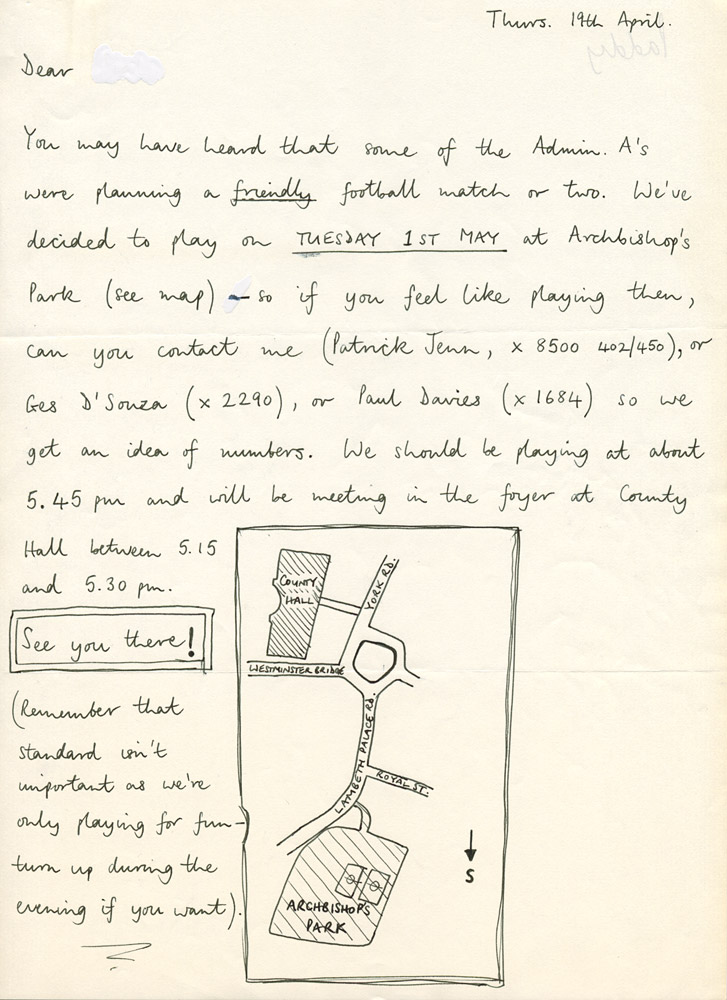 Thurs. 19th April.
Dear
You may have heard that some of the Admin. A's
were planning a friendly football match or two. We've
decided to play on TUESDAY 1ST MAY at Archbishop's
Park (see map) – so if you feel like playing then,
can you contact me (Patrick Jenn, x 8500 402/450), or
Ges D'Souza (x 2290), or Paul Davies (x 1684) so we
get an idea of numbers. We should be playing at about
5.45 pm and will be meeting in the foyer at County
Hall between 5.15
and 5.30 pm.
See you there!
(Remember that
standard isn't
important as we're
only playing for fun –
turn up during the
evening if you want).
COUNTY
HALL
YORK RD.
WESTMINSTER BRIDGE
LAMBETH PALACE RD.
ROYAL ST.
S
ARCHBISHOPS
PARK